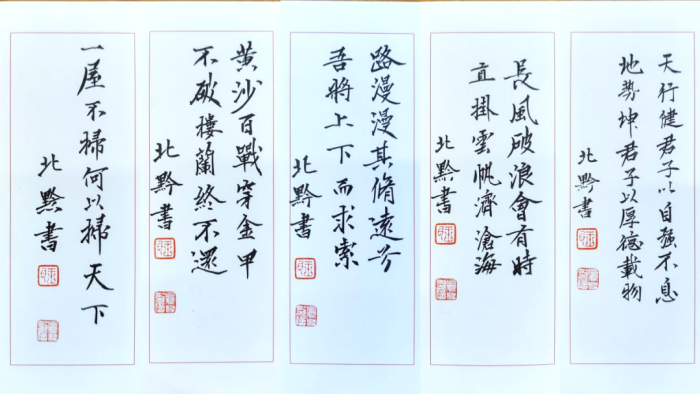 天行健君子以自强不息
地势坤君子以厚德載物
北黔書
長風破浪會有時
直掛雲帆濟滄海
北黔書
路漫漫其脩遠兮
吾將上下而求索
北黔書
黄沙百戰穿金甲
不破樓蘭終不還
北黔書
一屋不掃何以掃天下
北黔書